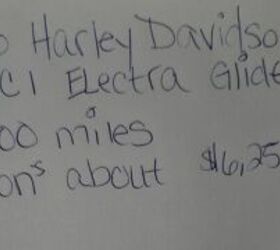 o Harley Davidso
CI Electra Glide
00 miles
ons about $6,25